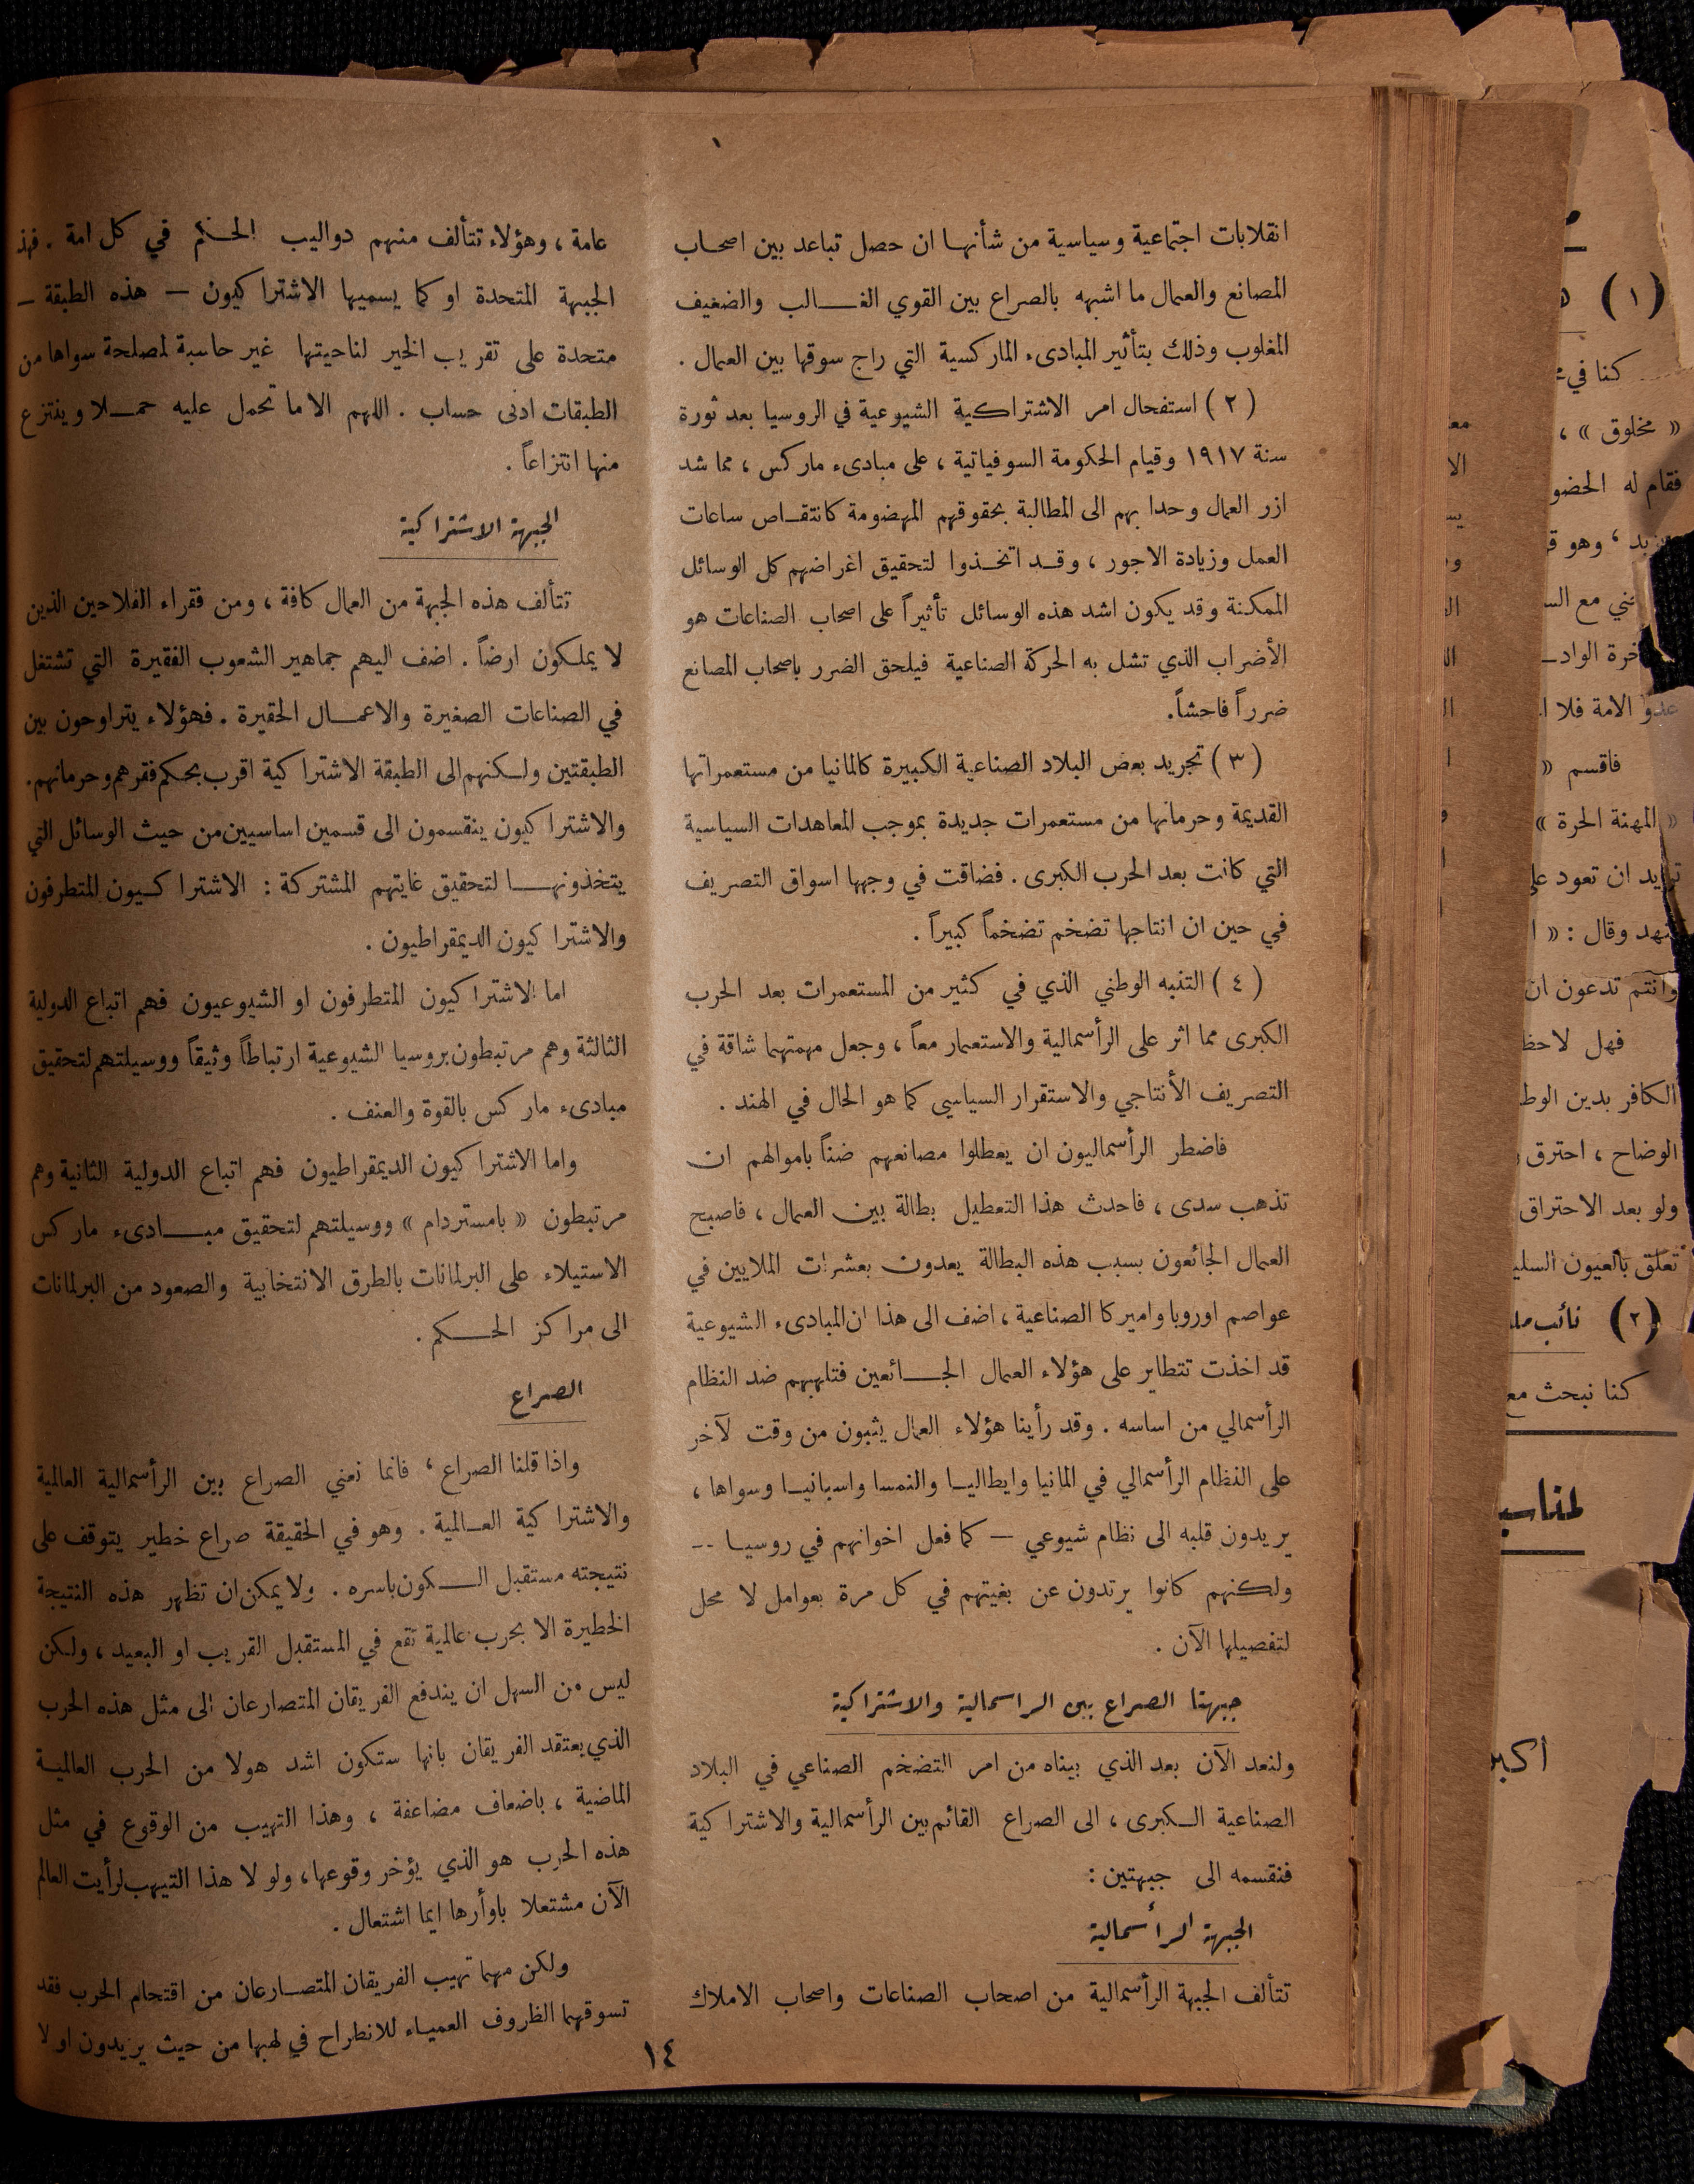 انقلابات اجتماعية وسياسية من شأنها ان حصل تباعد بين اصحاب
المصانع والعمال ما اشبهه بالصراع بين القوي الغالب والضعيف
المغلوب وذلك بتأثير المبادىء الماركسية التي راج سوقها بين العمال .
( ٢ ) استفحال امر الاشتراكية الشيوعية في الروسيا بعد ثورة
سنة ١٩١٧ وقيام الحكومة السوفياتية ، على مبادىء ماركس ، مما شد
ازر العمال وحدا بهم الى المطالبة بحقوقهم المهضومة كانتقاص ساعات
العمل وزيادة الاجور ، وقد اتخذوا لتحقيق اغراضهم كل الوسائل
الممكنة وقد يكون اشد هذه الوسائل تأثيراً على اصحاب الصناعات هو
الأضراب الذي تشل به الحركة الصناعية فيلحق الضرر باصحاب المصانع
ضرراً فاحشاً.
( ٣ ) تجريد بعض البلاد الصناعية الكبيرة كالمانيا من مستعمراتها
القديمة وحرمانها من مستعمرات جديدة بموجب المعاهدات السياسية
التي كانت بعد الحرب الكبرى . فضاقت في وجهها اسواق التصريف
في حين ان انتاجها تضخم تضخماً كبيراً .
( ٤ ) التنبه الوطني الذي في كثير من المستعمرات بعد الحرب
الكبرى مما اثر على الرأسمالية والاستعمار معاً ، وجعل مهمتهما شاقة في
التصريف الأنتاجي والاستقرار السياسي كما هو الحال في الهند .
فاضطر الرأسماليون ان يعطلوا مصانعهم ضناً باموالهم ان
تذهب سدى ، فاحدث هذا التعطيل بطالة بين العمال ، فاصبح
العمال الجائعون بسبب هذه البطالة يعدون بعشرات الملايين في
عواصم اوروبا واميركا الصناعية ، اضف الى هذا ان المبادىء الشيوعية
قد اخذت تتطاير على هؤلاء العمال الجائعين فتلهبهم ضد النظام
الرأسمالي من اساسه . وقد رأينا هؤلاء العمال يثبون من وقت لآخر
على النظام الرأسمالي في المانيا وايطاليا والنمسا واسبانيا وسواها ،
يريدون قلبه الى نظام شيوعي — كما فعل اخوانهم في روسيا --
ولكنهم كانوا يرتدون عن بغيتهم في كل مرة بعوامل لا محل
لتفصيلها الآن .
جبهتا الصراع بين الراسمالية والاشتراكية
ولنعد الآن بعد الذي بيناه من امر التضخم الصناعي في البلاد
الصناعية الكبرى ، الى الصراع القائم بين الرأسمالية والاشتراكية
فنقسمه الى جبهتين :
الجبهة الرأسمالية
تتألف الجبهة الرأسمالية من اصحاب الصناعات واصحاب الاملاك
عامة ، وهؤلاء تتألف منهم دواليب الحكم في كل امة . فهذ
الجبهة المتحدة او كما يسميها الاشتراكيون — هذه الطبقة —
متحدة على تقريب الخير لناحيتها غير حاسبة لمصلحة سواها من
الطبقات ادنى حساب . اللهم الا ما تحمل عليه حملا وينتزع
منها انتزاعاً .
الجبهة الاشتراكية
تتألف هذه الجبهة من العمال كافة ، ومن فقراء الفلاحين الذين
لا يملكون ارضاً . اضف اليهم جماهير الشعوب الفقيرة التي تشتغل
في الصناعات الصغيرة والاعمال الحقيرة . فهؤلاء يتراوحون بين
الطبقتين ولكنهم الى الطبقة الاشتراكية اقرب بحكم فقرهم وحرمانهم.
والاشتراكيون ينقسمون الى قسمين اساسيين من حيث الوسائل التي
يتخذونها لتحقيق غايتهم المشتركة : الاشتراكيون المتطرفون
والاشتراكيون الديمقراطيون .
اما الاشتراكيون المتطرفون او الشيوعيون فهم اتباع الدولية
الثالثة وهم مرتبطون بروسيا الشيوعية ارتباطاً وثيقاً ووسيلتهم لتحقيق
مبادىء ماركس بالقوة والعنف .
واما الاشتراكيون الديمقراطيون فهم اتباع الدولية الثانية وهم
مرتبطون « بامستردام » ووسيلتهم لتحقيق مبادىء ماركس
الاستيلاء على البرلمانات بالطرق الانتخابية والصعود من البرلمانات
الى مراكز الحكم .
الصراع
واذا قلنا الصراع ، فانما نعني الصراع بين الرأسمالية العالمية
والاشتراكية العالمية . وهو في الحقيقة صراع خطير يتوقف على
نتيجته مستقبل الكون باسره . ولا يمكن ان تظهر هذه النتيجة
الخطيرة الا بحرب عالمية تقع في المستقبل القريب او البعيد ، ولكن
ليس من السهل ان يندفع الفريقان المتصارعان الى مثل هذه الحرب
الذي يعتقد الفريقان بانها ستكون اشد هولا من الحرب العالمية
الماضية ، باضعاف مضاعفة ، وهذا التهيب من الوقوع في مثل
هذه الحرب هو الذي يؤخر وقوعها ، ولو لا هذا التيهب لرأيت العالم
الآن مشتعلا باوأرها ايما اشتعال .
ولكن مهما تهيب الفريقان المتصارعان من اقتحام الحرب فقد
تسوقهما الظروف العمياء للانطراح في لهبها من حيث يريدون او لا
١٤
( ١ )
كنا في
« مخلوق » ،
فقام له الحضو
وهو
ني مع
عدو الامة فلا
فاقسم «
« المهنة الحرة »
ان تعود
وقال : «
وانتم تدعون ان
فهل لاحظ
الكافر بدين الوط
الوضاح ، احترق
ولو بعد الاحتراق
تعلق بالعيون
( ٢ ) نائب
كنا نبحث مع